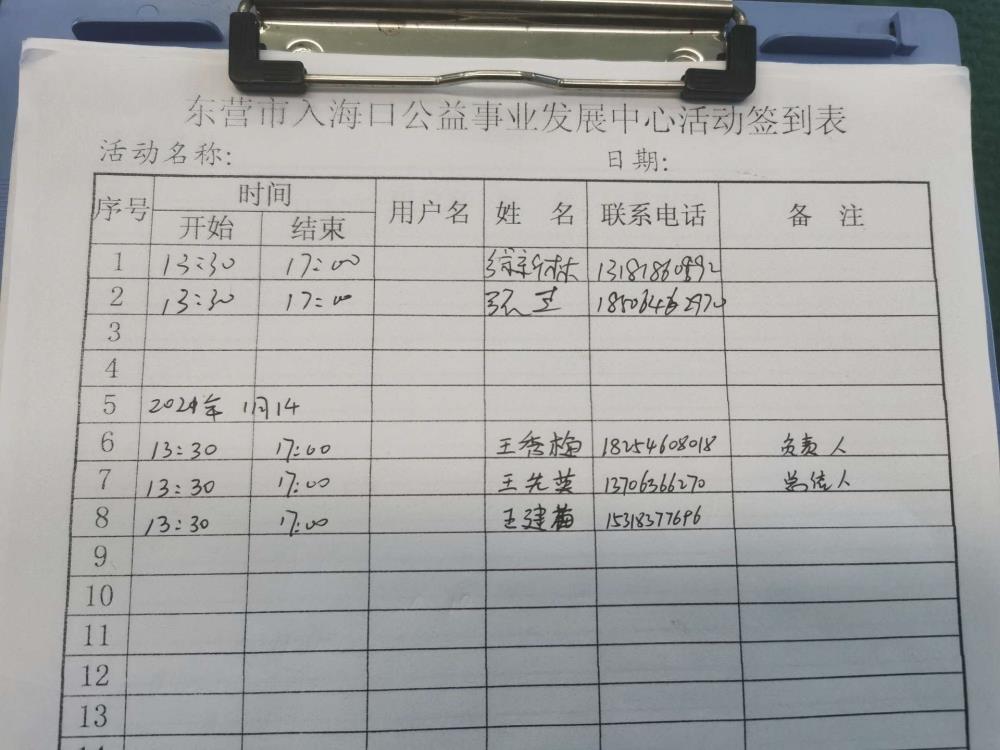 东营市入海口公益事业发展中心活动签到表
活动名称: 日期:
序号 时间 用户名 姓 名 联系电话 备 注
开始 结束
1 13:30 17:00 13181860892
2 13:30 17:00 18506462970
3
4
5 2021年 11月14
6 13:30 17:00 王秀梅 18254608018 负责人
7 13:30 17:00 王先英 13706366270 宣传人
8 13:30 17:00 王建梅 15318377696
9
10
11
12
13